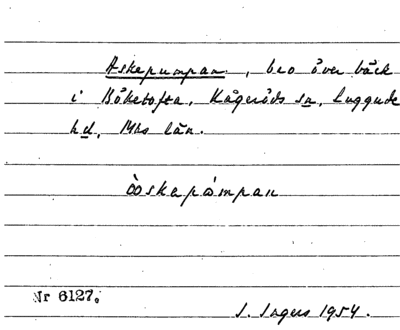 Askepumpan, bro över bäck
i Böketofta, Kågeröds sn, Luggude
hd, Mhs län.
òoskepåmpan
Nr 6127.
S. Ingers 1954.